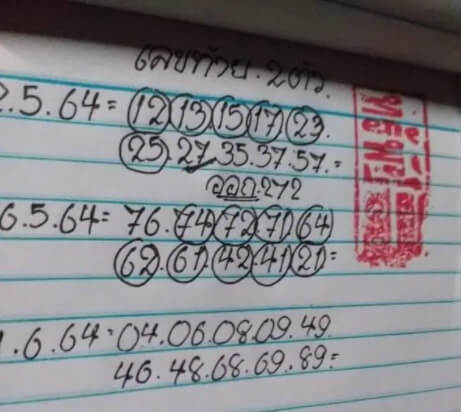 เลขท้าย.2ตัว.
2.5.64= 12 13 15 17 23.
25.27.35.37.57.=
ออก.272
6.5.64= 76.74.72.71.64
62.61.42.41.21=
1.6.64=04.06.08.09.49
46.48.68.69.89=